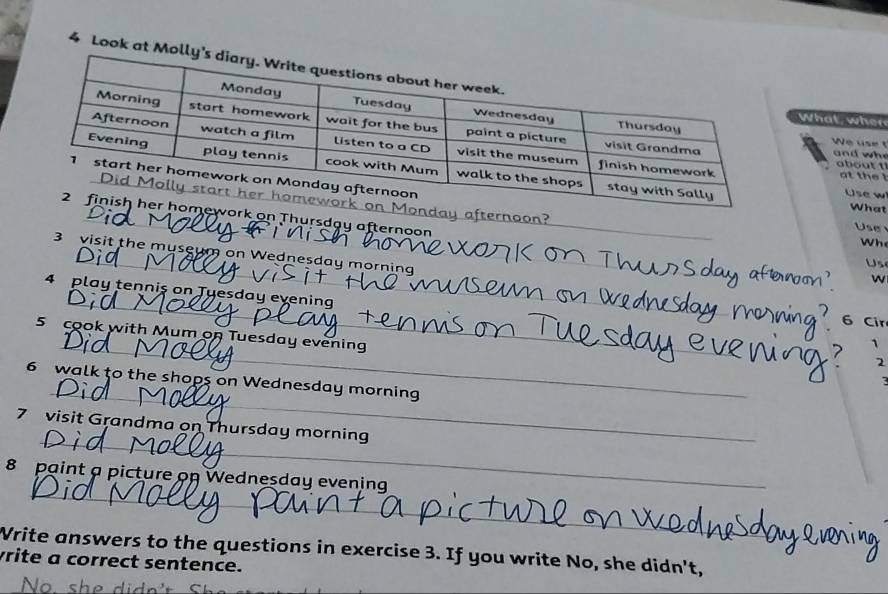 4 Look at Molly's diary. Write questions about her week.
Monday Tuesday Wednesday Thursday
Morning start homework wait for the bus paint a picture visit Grandma
Afternoon watch a film listen to a CD visit the museum finish homework
Evening play tennis cook with Mum walk to the shops stay with Sally
1 start her homework on Monday afternoon
Did Molly start her homework on Monday afternoon?
2 finish her homework on Thursday afternoon
Did Molly finish homework on Thursday afternoon?
3 visit the museum on Wednesday morning
Did Molly visit the museum on Wednesday morning?
4 play tennis on Tuesday evening
Did Molly play tennis on Tuesday evening?
5 cook with Mum on Tuesday evening
Did Molly
6 walk to the shops on Wednesday morning
Did Molly
7 visit Grandma on Thursday morning
Did Molly
8 paint a picture on Wednesday evening
Did Molly paint a picture on Wednesday evening
Write answers to the questions in exercise 3. If you write No, she didn't,
write a correct sentence.
No, she didn't. She
What, where
We use t
and whe
about t
at the
Use w
What
Use
Whe
Use
W
6 Cir
1
2
3